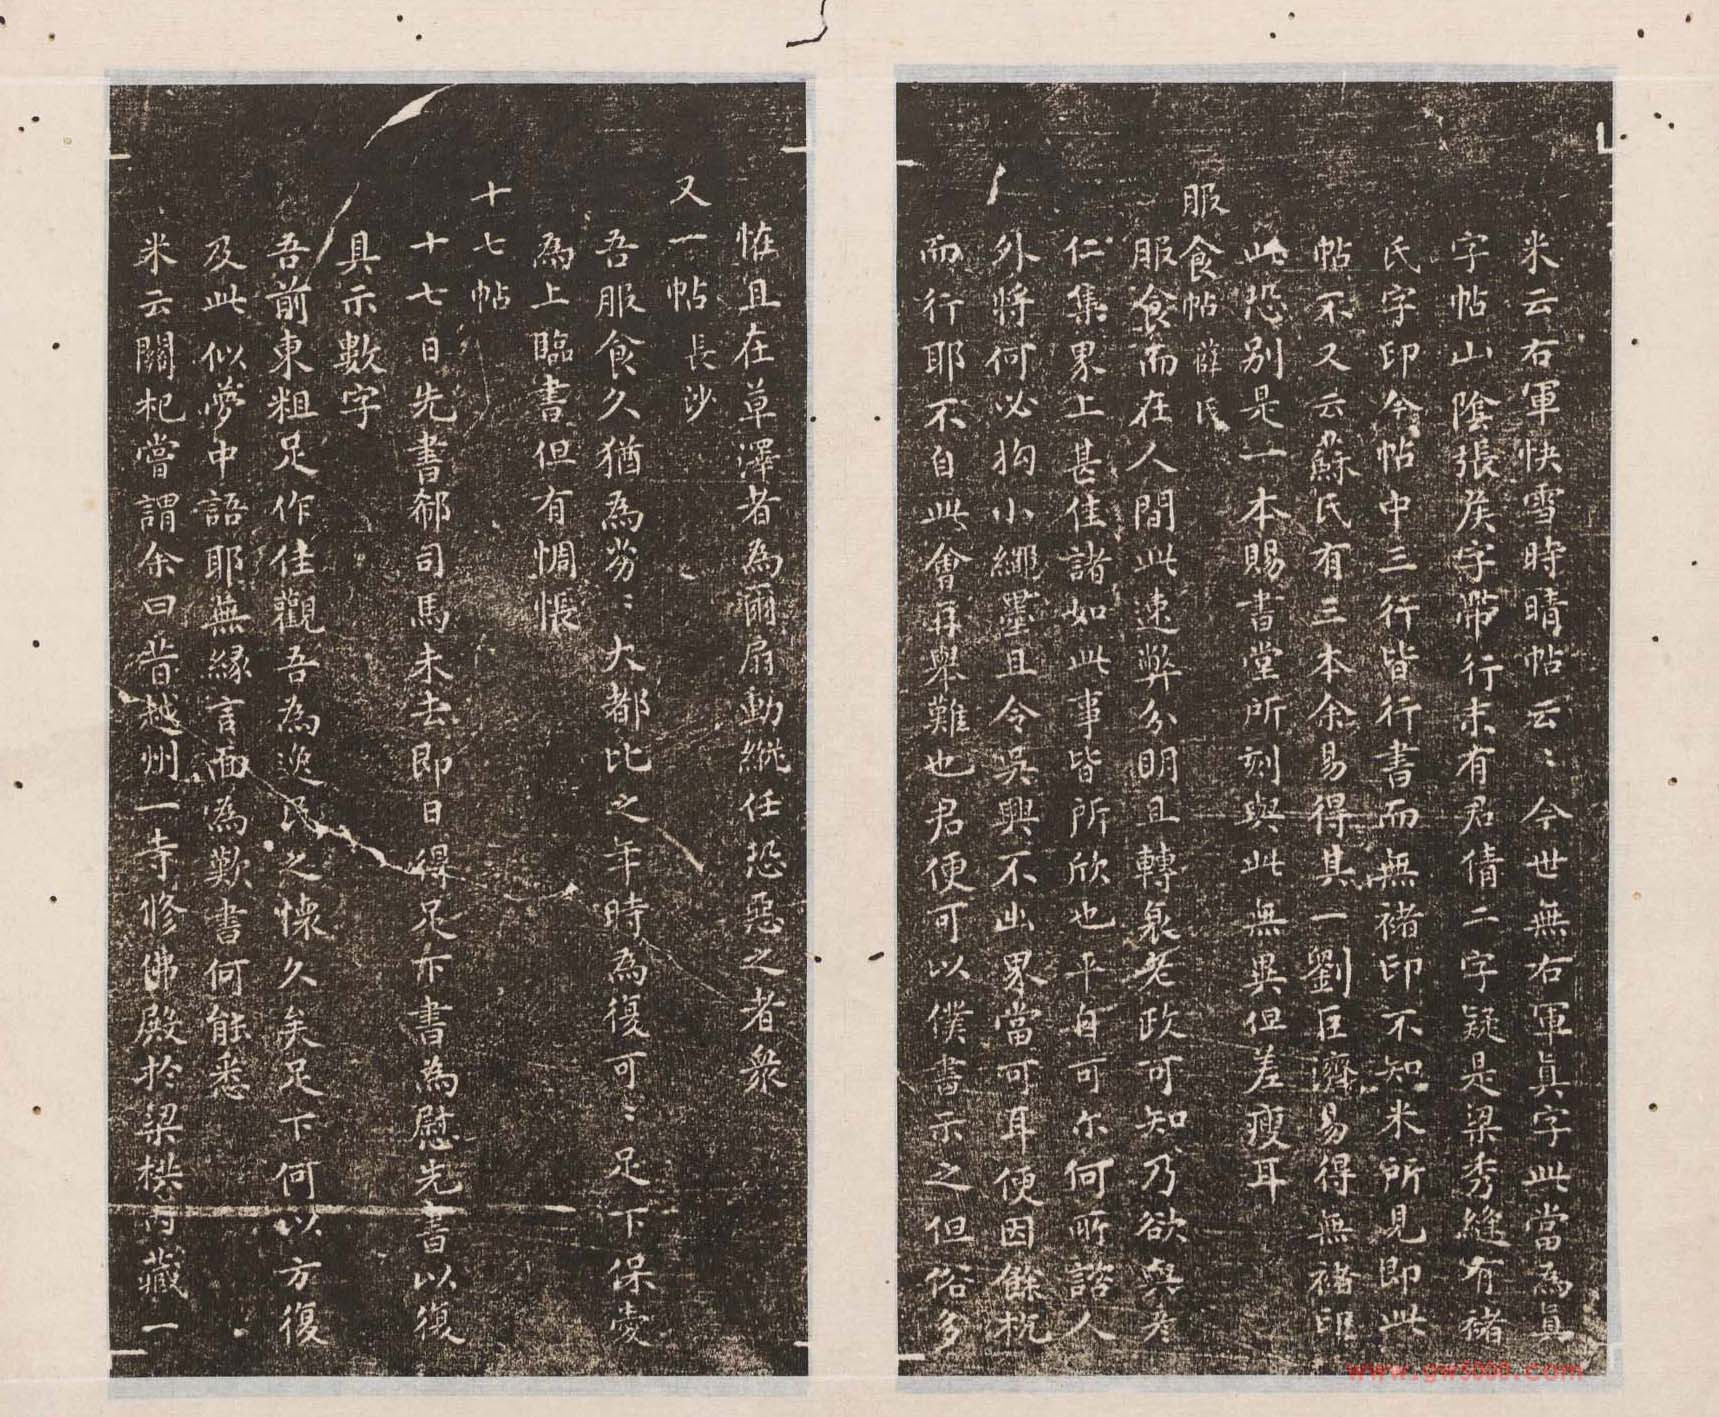 米云右軍快雪時晴帖云〻今世無右軍真字此當為真
字帖山陰張矦字帶行末有君倩二字疑是梁秀縫有褚
氏字印今帖中三行皆行書而無褚印不知米所見即此
帖不又云蘇氏有三本余易得其一劉巨濟易得無褚印
此恐別是一本賜書堂所刻與此無異但差瘦耳
服食帖 薛氏
服食而在人間此速弊分明且轉衰老政可知乃欲與彥
仁集界上甚佳諸如此事皆所欣也平自可尔何所諮人
外將何必拘小繩墨且令吳興不出界當可耳便因餘杭
而行耶不自此會再舉難也君便可以僕書示之但俗多
恠且在草澤者為爾扇動縱任恐惡之者衆
又一帖 長沙
吾服食久猶為劣〻大都比之年時為復可〻足下保愛
為上臨書但有惆悵
十七帖
十七日先書郗司馬未去即日得足下書為慰先書以復
具示數字
吾前東粗足作佳觀吾為逸民之懷久矣足下何以方復
及此似夢中語耶無緣言面為歎書何能悉
米云關杞嘗謂余曰昔越州一寺修佛殿於梁栱內藏一
www.gw5000.com